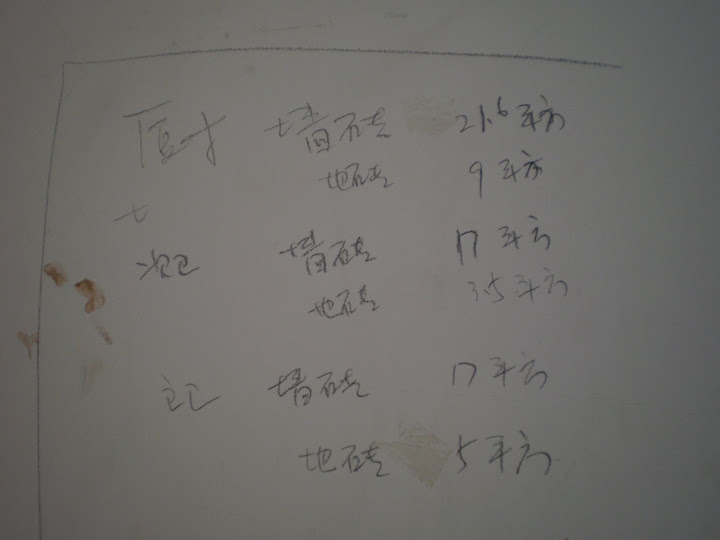 厨 墙砖 21.6 平方
地砖 9 平方
次卫 墙砖 17 平方
地砖 3.5 平方
主卫 墙砖 17 平方
地砖 5 平方